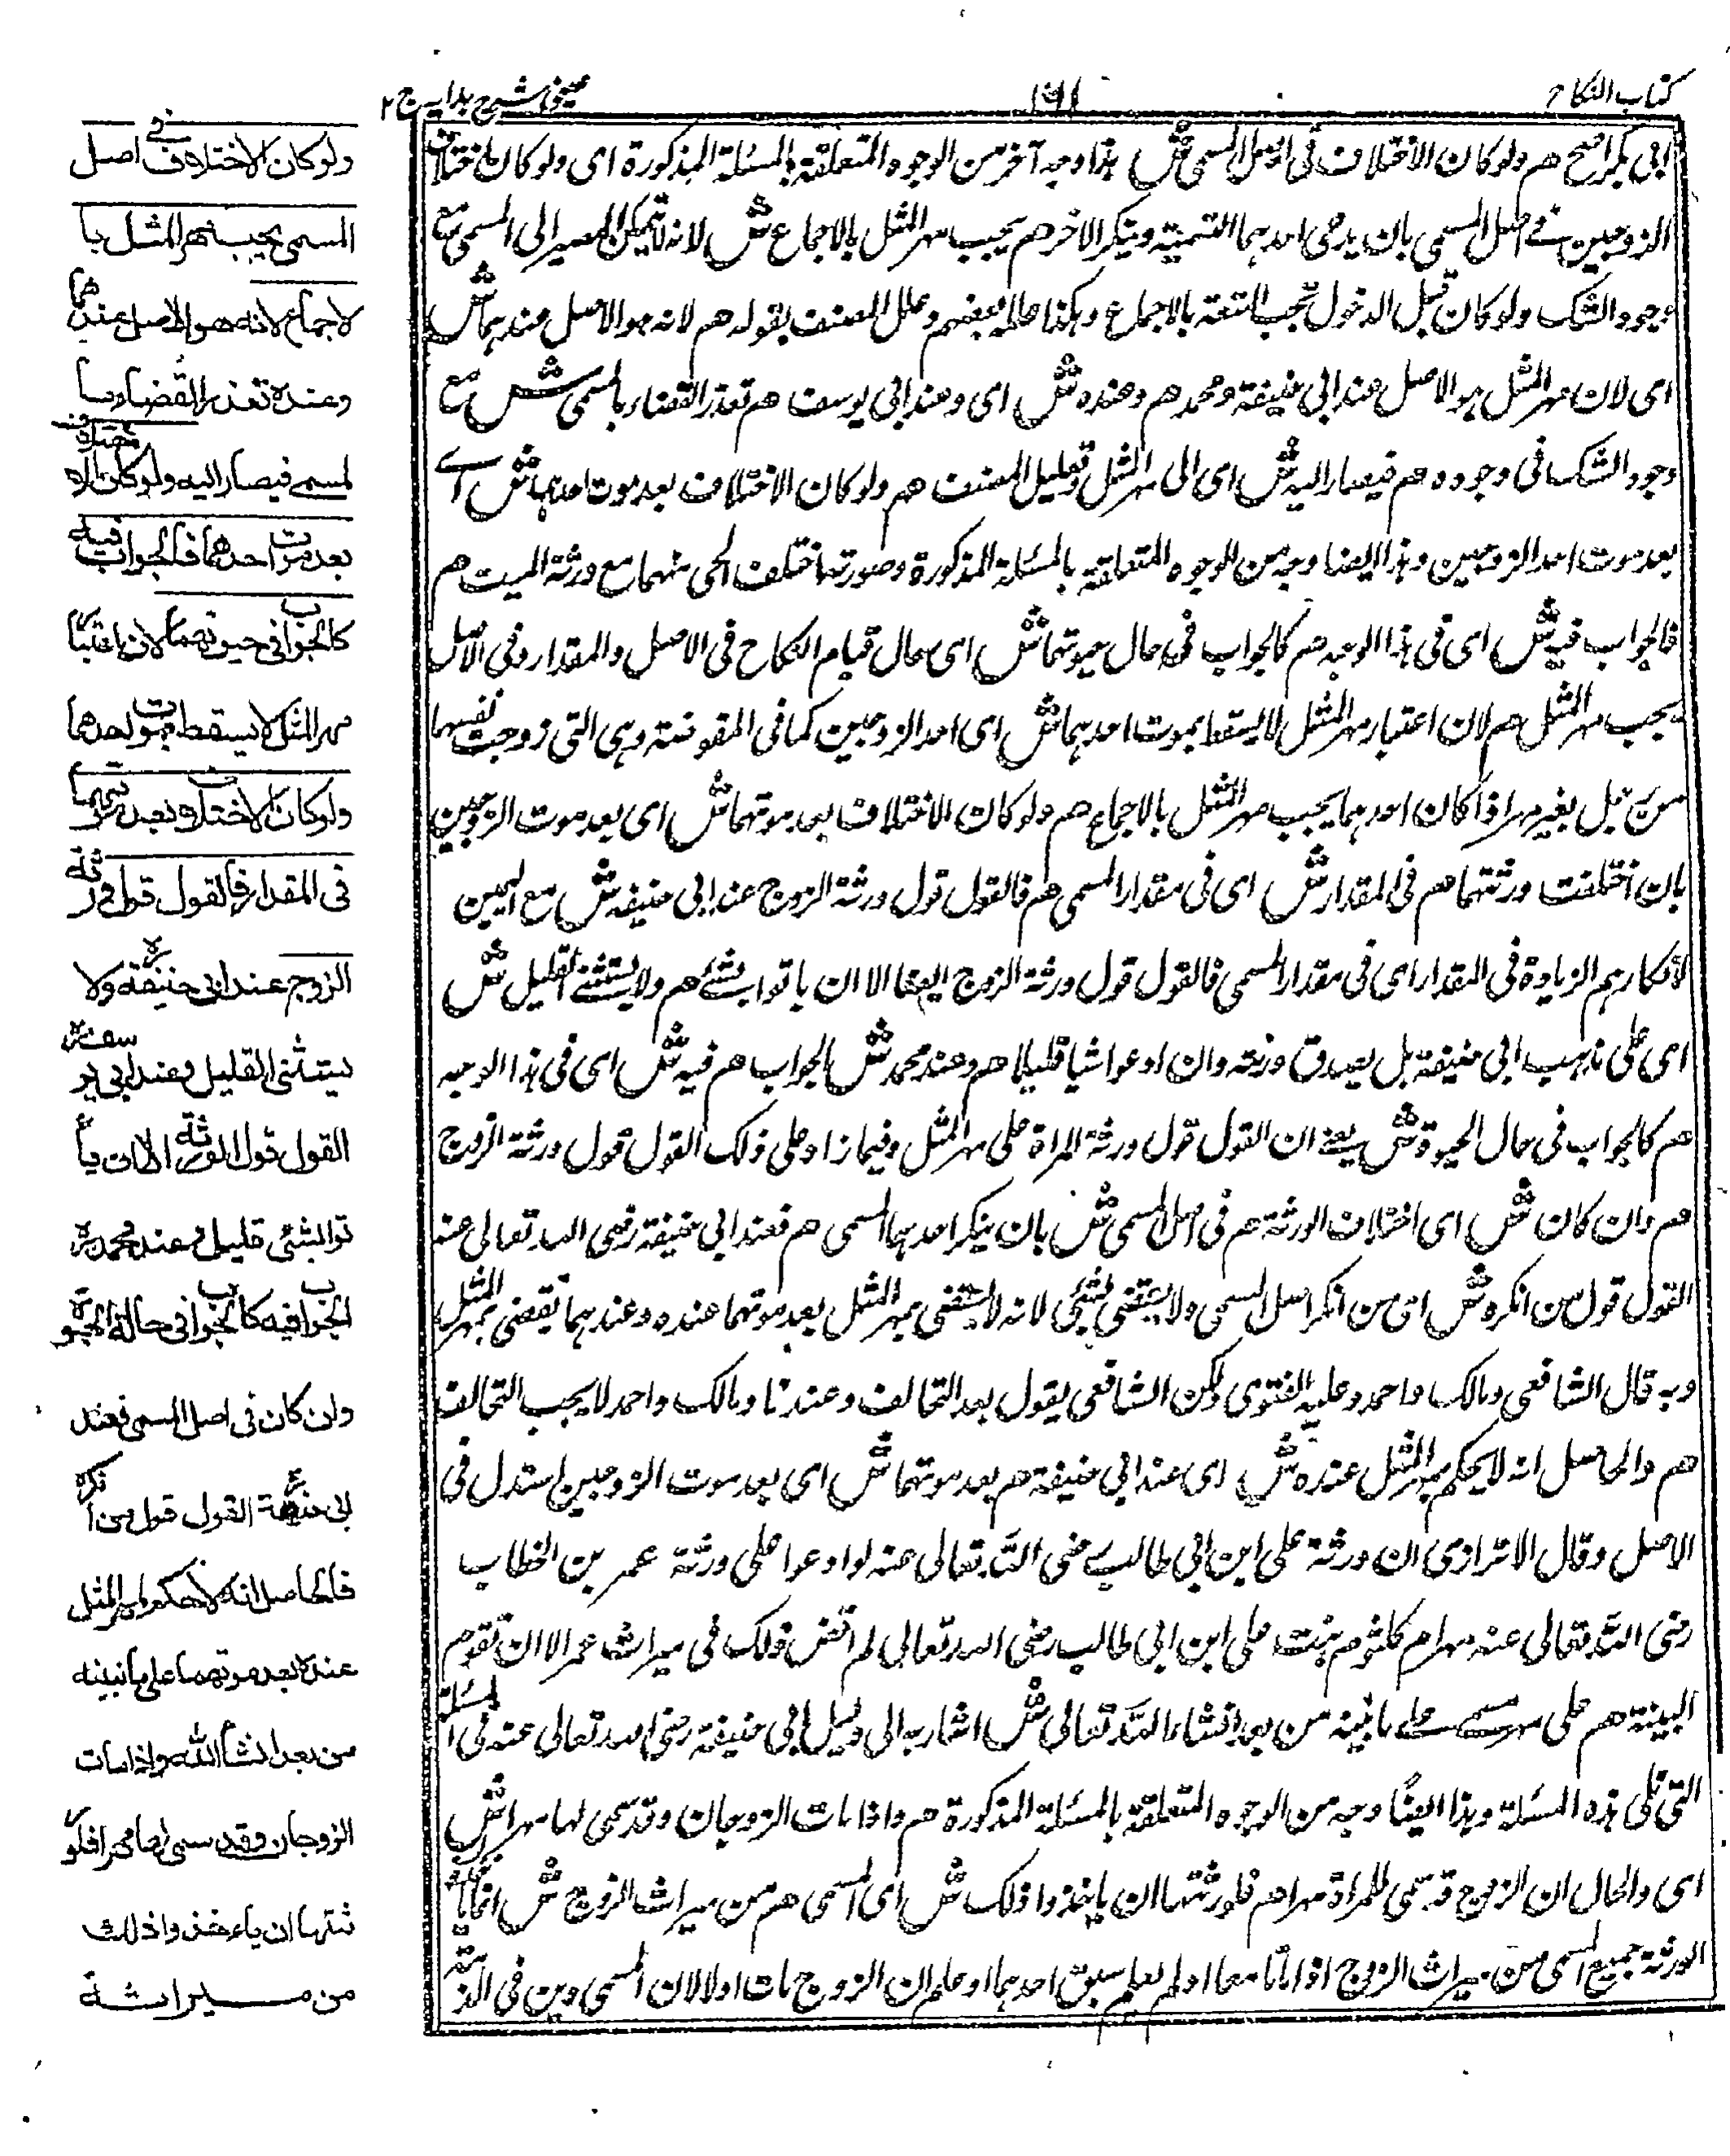 كتاب النكاح
١٩١
عينى شرح هداية ج ٢
ابى بكر اصح هم ولو كان الاختلاف فى اصل المسمى ش هذا وجه آخر من الوجوه المتعلقة بالمسئلة المذكورة اى ولو كان اختلاف
الزوجين فى اصل المسمى بان يدعى احدهما التسمية وينكر الاخر هم يجب مهر المثل بالاجماع ش لانه لا يمكن المصير الى المسمى مع
وجود الشك ولو كان قبل الدخول تجب المتعة بالاجماع وهكذا علله بعضهم وعلل المصنف بقوله هم لانه هو الاصل عندهما ش
اى لان مهر المثل هو الاصل عند ابى حنيفة ومحمد هم وعنده ش اى وعند ابى يوسف هم تعذر القضاء بالمسمى ش مع
وجود الشك فى وجوده هم فيصار اليه ش اى الى مهر المثل وتعليل المصنف هم ولو كان الاختلاف بعد موت احدهما ش اے
بعد موت احد الزوجين وهذا ايضا وجه من الوجوه المتعلقة بالمسئلة المذكورة وصورتها اختلف الحى منهما مع ورثة الميت هم
فالجواب فيه ش اى فى هذا الوجه هم كالجواب فى حال حيوتهما ش اى حال قيام النكاح فى الاصل والمقدار وفى الاصل
يجب مهر المثل هم لان اعتبار مهر المثل لا يسقط بموت احدهما ش اى احد الزوجين كما فى المفوضة وهى التى زوجت نفسها
من رجل بغير مهر اذا كان احدهما يجب مهر المثل بالاجماع هم ولو كان الاختلاف بعد موتهما ش اى بعد موت الزوجين
بان اختلفت ورثتهما هم فى المقدار ش اى فى مقدار المسمى هم فالقول قول ورثة الزوج عند ابى حنيفه ش مع اليمين
لانكارهم الزيادة فى المقدار اى فى مقدار المسمى فالقول قول ورثة الزوج ايضا الا ان ياتوا بشئ هم ولا يستثنى القليل ش
اى على مذهب ابى حنيفة بل يصدق ورثته وان ادعوا شيا قليلا هم وعند محمد ش الجواب هم فيه ش اى فى هذا الوجه
هم كالجواب فى حال الحيوة ش يعنى ان القول قول ورثة المراة على مهر المثل وفيما زاد على ذلك القول قول ورثة الزوج
هم وان كان ش اى اختلاف الورثة هم فى اصل المسمى ش بان ينكر احدهما المسمى هم فعند ابى حنيفة رضى الله تعالى عنه
القول قول من انكره ش اى من انكر اصل المسمى ولا يقضى بشئ لانه لا يقضى بمهر المثل بعد موتهما عنده وعندهما يقضى بمهر المثل
وبه قال الشافعى ومالك واحمد وعليه الفتوى ولكن الشافعى يقول بعد التحالف وعندنا ومالك واحمد لا يجب التحالف
هم والحاصل انه لا يحكم بمهر المثل عنده ش اى عند ابى حنيفة هم بعد موتهما ش اى بعد موت الزوجين استدل فى
الاصل وقال الاترازى ان ورثة على ابن ابى طالب رضى الله تعالى عنه لو ادعوا على ورثة عمر بن الخطاب
رضى الله تعالى عنه مهر ام كلثوم بنت على ابن ابى طالب رضى الله تعالى لم اقض ذلك فى ميراث عمر الا ان تقوم
البينة هم على ما نبينه من بعد انشاء الله تعالى ش اشار به الى دليل ابى حنيفة رضى الله تعالى عنه فى المسئلة
التى تلى هذه المسئلة وهذا ايضًا وجه من الوجوه المتعلقة بالمسئلة المذكورة هم واذا مات الزوجان وقد سمى لها مهرا ش
اى والحال ان الزوج قد سمى للمراة مهرا هم فلورثتها ان ياخذوا ذلك ش اى المسمى هم من ميراث الزوج ش
الورثة جميع المسمى من ميراث الزوج اذا ماتا معا او لم يعلم سبق احدهما او علم ان الزوج مات اولا لان المسمى دين فى الذمة
ولو كان الاختلاف فى اصل
المسمى يجب مهر المثل با
لاجماع لانه هو الاصل عندهما
وعنده تعذر القضاء با
لمسمى فيصار اليه ولو كان الاختلاف
بعد موت احدهما فالجواب فيه
كالجواب فى حيوتهما لان اعتبار
مهر المثل لا يسقط بموت احدهما
ولو كان الاختلاف بعد موتهما
فى المقدار فالقول قول ورثة
الزوج عند ابى حنيفة ره ولا
يستثنى القليل وعند ابى يوسف ره
القول قول الورثة الا ان يا
توا بشئ قليل وعند محمد ره
الجواب فيه كالجواب فى حالة الحيوة
وان كان فى اصل المسمى فعند
ابى حنيفة القول قول من انكره
فالحاصل انه لا حكم لمهر المثل
عنده بعد موتهما على ما نبينه
من بعد انشاء الله واذا مات
الزوجان وقد سمى لها مهرا فلور
ثتها ان ياءخذوا ذلك
من ميراثه